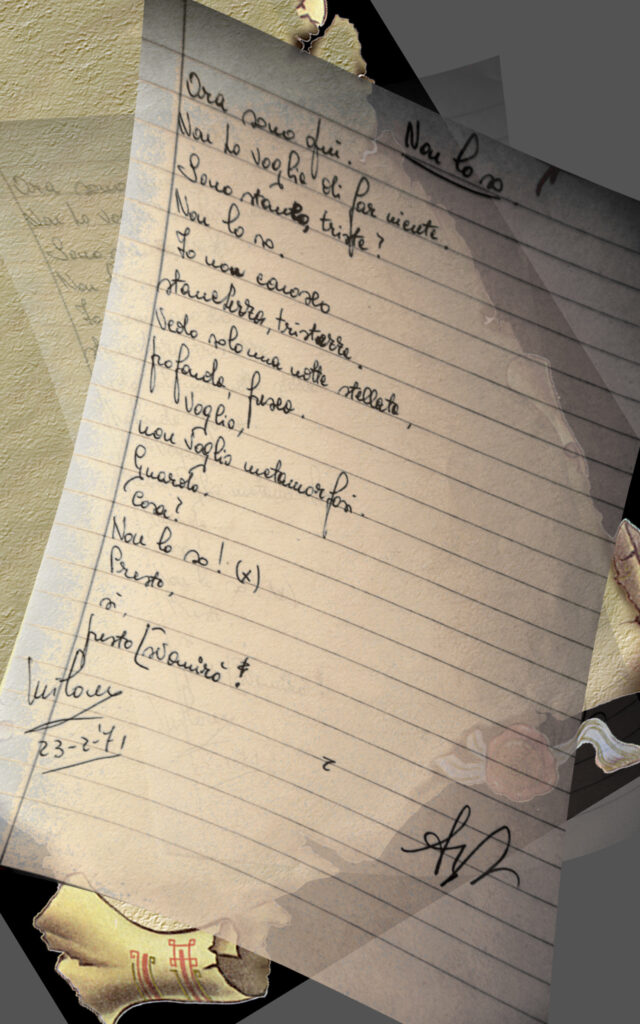 Non lo so
Ora sono qui.
Non ho voglia di far niente.
Sono stanco, triste?
Non lo so.
Io non conosco
stanchezza, tristezza.
Vedo solo una notte stellata,
profonda, fresca.
Voglio,
non voglio metamorfosi.
Guardo.
Cosa?
Non lo so! (x)
Presto,
sì,
presto [svanirò!
23-2-71
Ora sono
Non ho vo
Sono s
Non l
Io